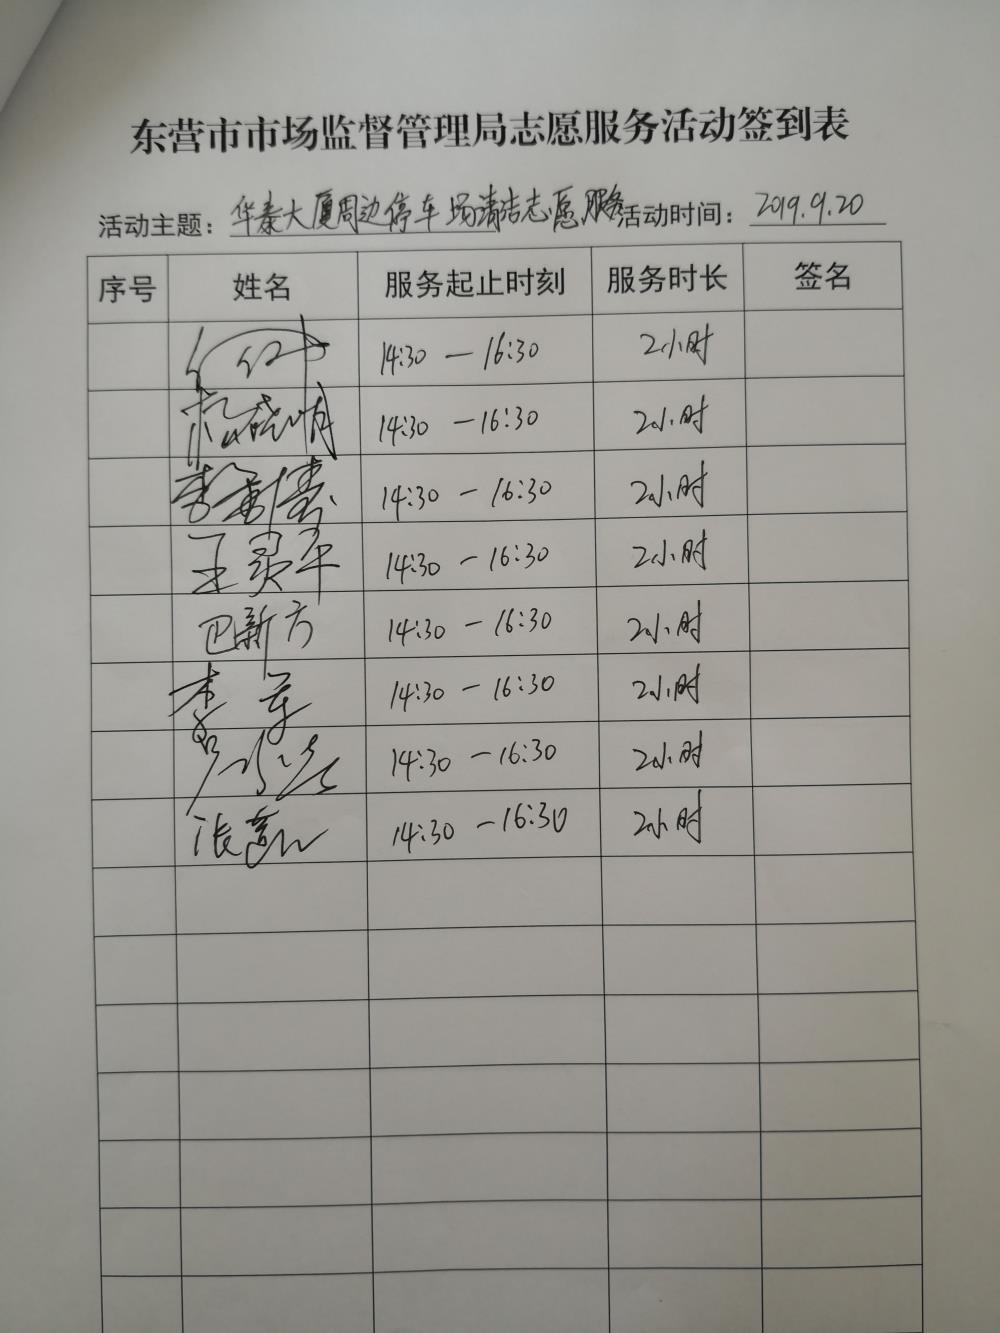 东营市市场监督管理局志愿服务活动签到表
活动主题：华泰大厦周边停车场清洁志愿服务 活动时间：2019.9.20
序号 姓名 服务起止时刻 服务时长 签名
14:30 — 16:30 2小时
14:30 — 16:30 2小时
14:30 — 16:30 2小时
王灵平 14:30 — 16:30 2小时
巴新方 14:30 — 16:30 2小时
李军 14:30 — 16:30 2小时
14:30 — 16:30 2小时
张 14:30 — 16:30 2小时